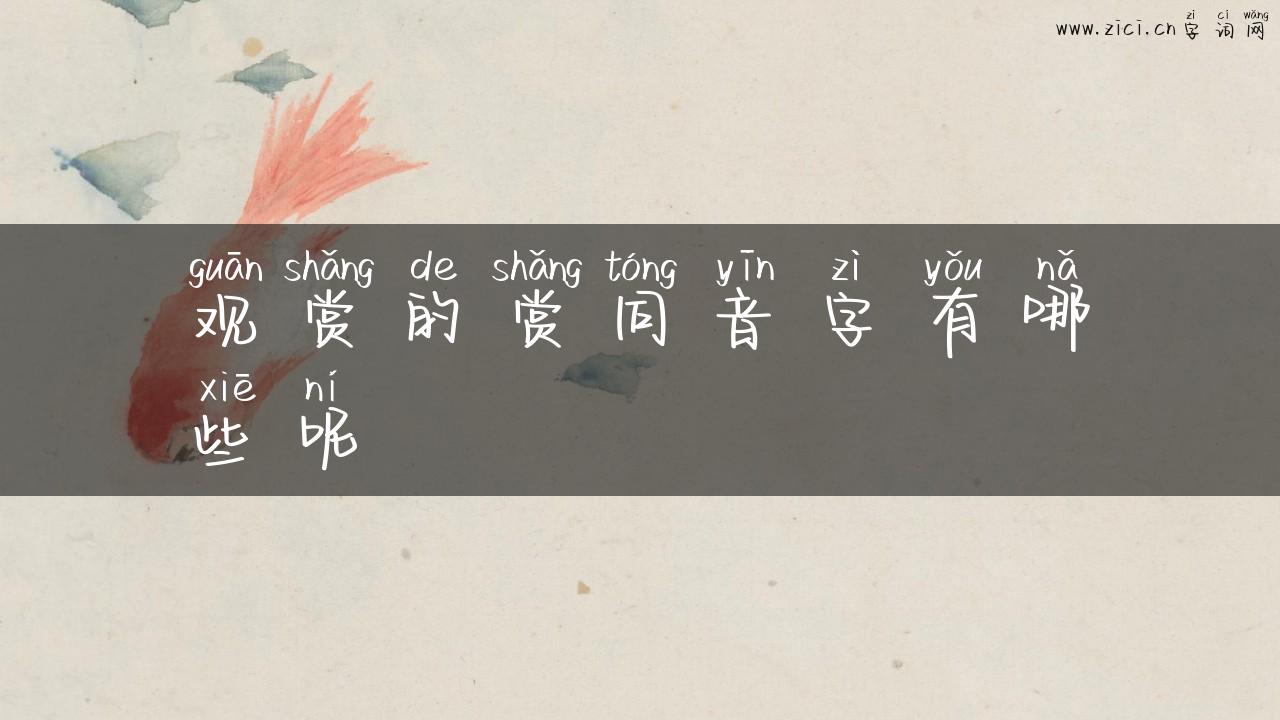 zì cí wǎng
www.zici.cn 字词网
guān shǎng de shǎng tóng yīn zì yǒu nǎ
观赏的赏同音字有哪
xiē ní
些呢